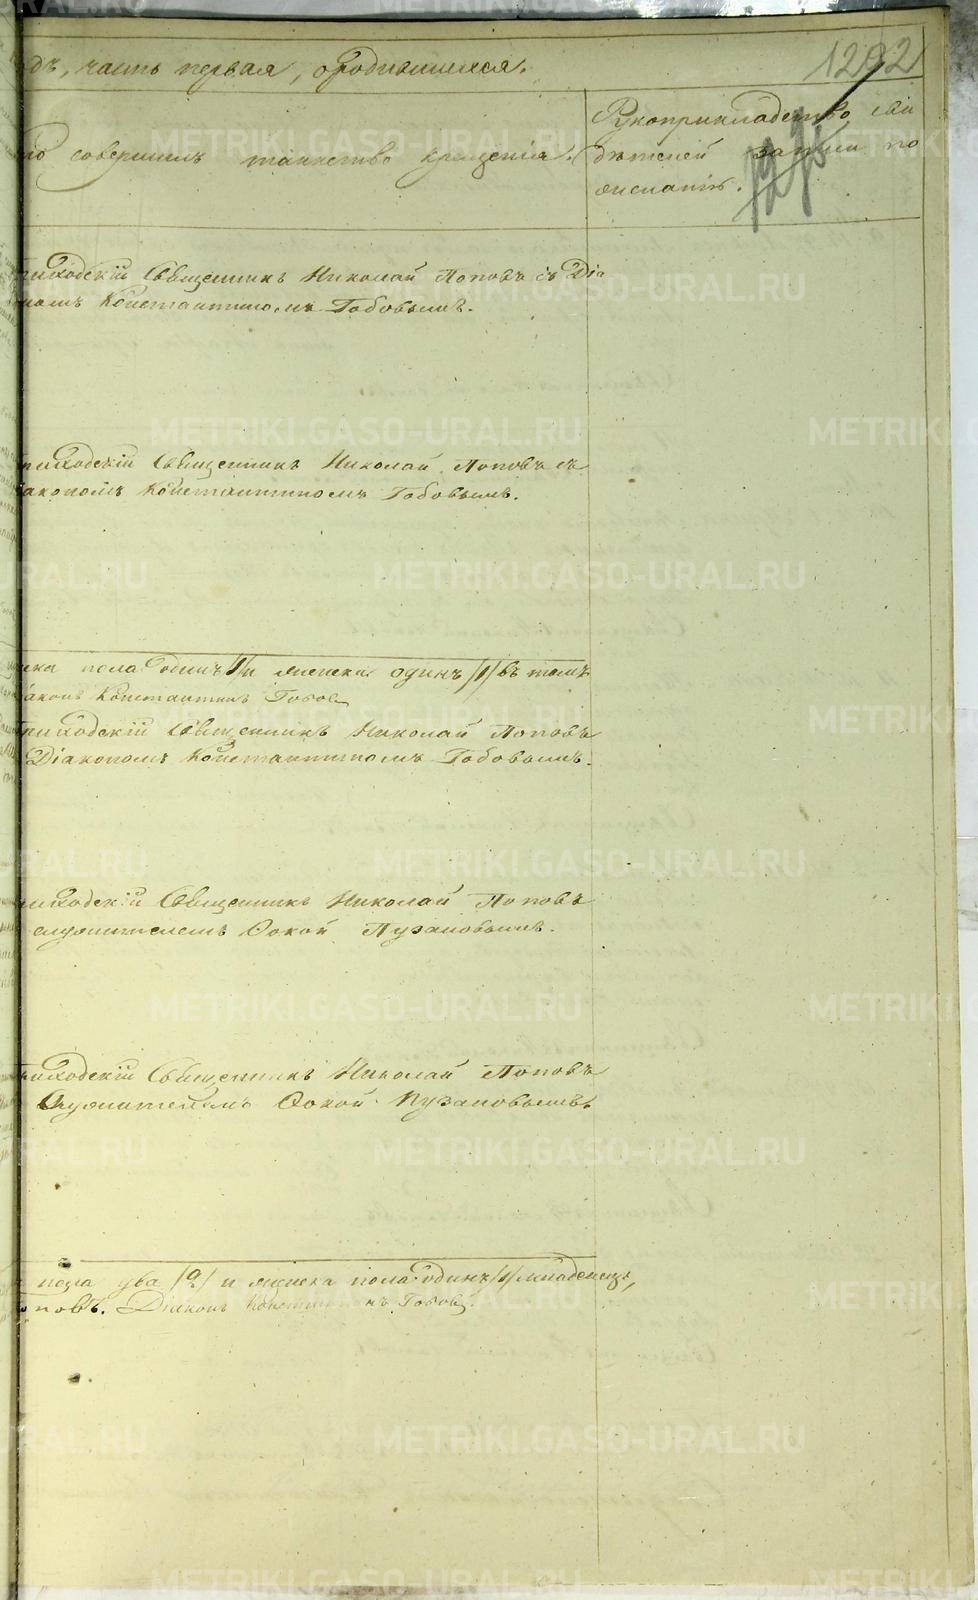 дъ, часть первая, о родившихся.
1292
то совершилъ таинство крещенія.
Рукоприкладство сви
дѣтелей записи по
желанію.
приходскій Священникъ Николай Поповъ съ Діа
кономъ Константиномъ Гобовымъ.
приходскій Священникъ Николай Поповъ съ
Діакономъ Константиномъ Гобовымъ.
жеска пола одинъ /1/ и женска одинъ /1/ въ томъ
Діаконъ Константинъ Гобов
приходскій Священникъ Николай Поповъ
Діакономъ Константиномъ Гобовымъ.
приходскій Священникъ Николай Поповъ
служителемъ Ѳокой Пузановымъ.
приходскій Священникъ Николай Поповъ
Служителемъ Ѳокой Пузановымъ
пола два /2/ и женска пола одинъ /1/ младенецъ,
оповъ. Діаконъ Константинъ Гобов
METRIKI.GASO-URAL.RU